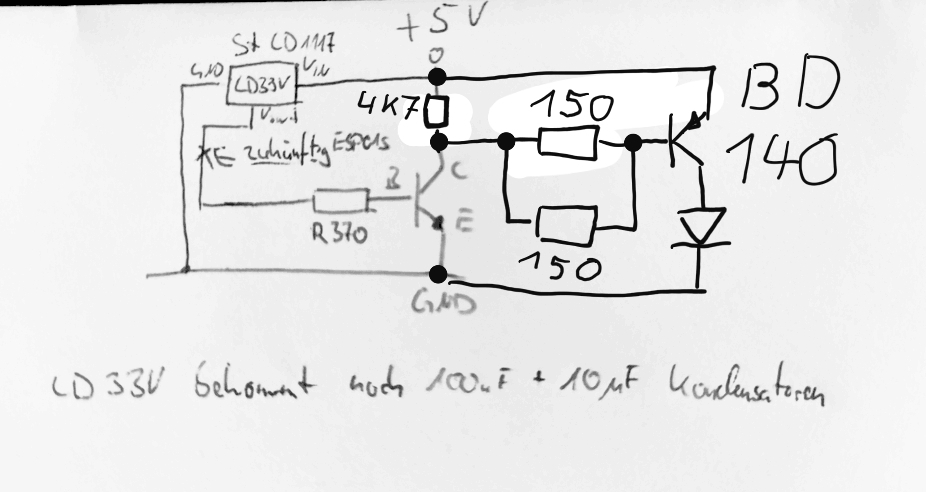 +5V
St LD1117
GND
VIN
LD33V
Vout
4K7
150
BD
140
zukünftig ESP01s
B
C
E
R370
150
GND
LD33V bekommt noch 100uF + 10µF Kondensatoren